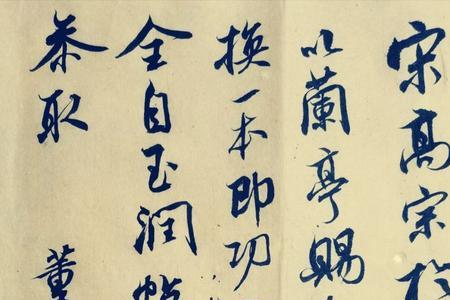 宋高宗
以蘭亭賜
換一本即功
全自玉潤帖
取 董